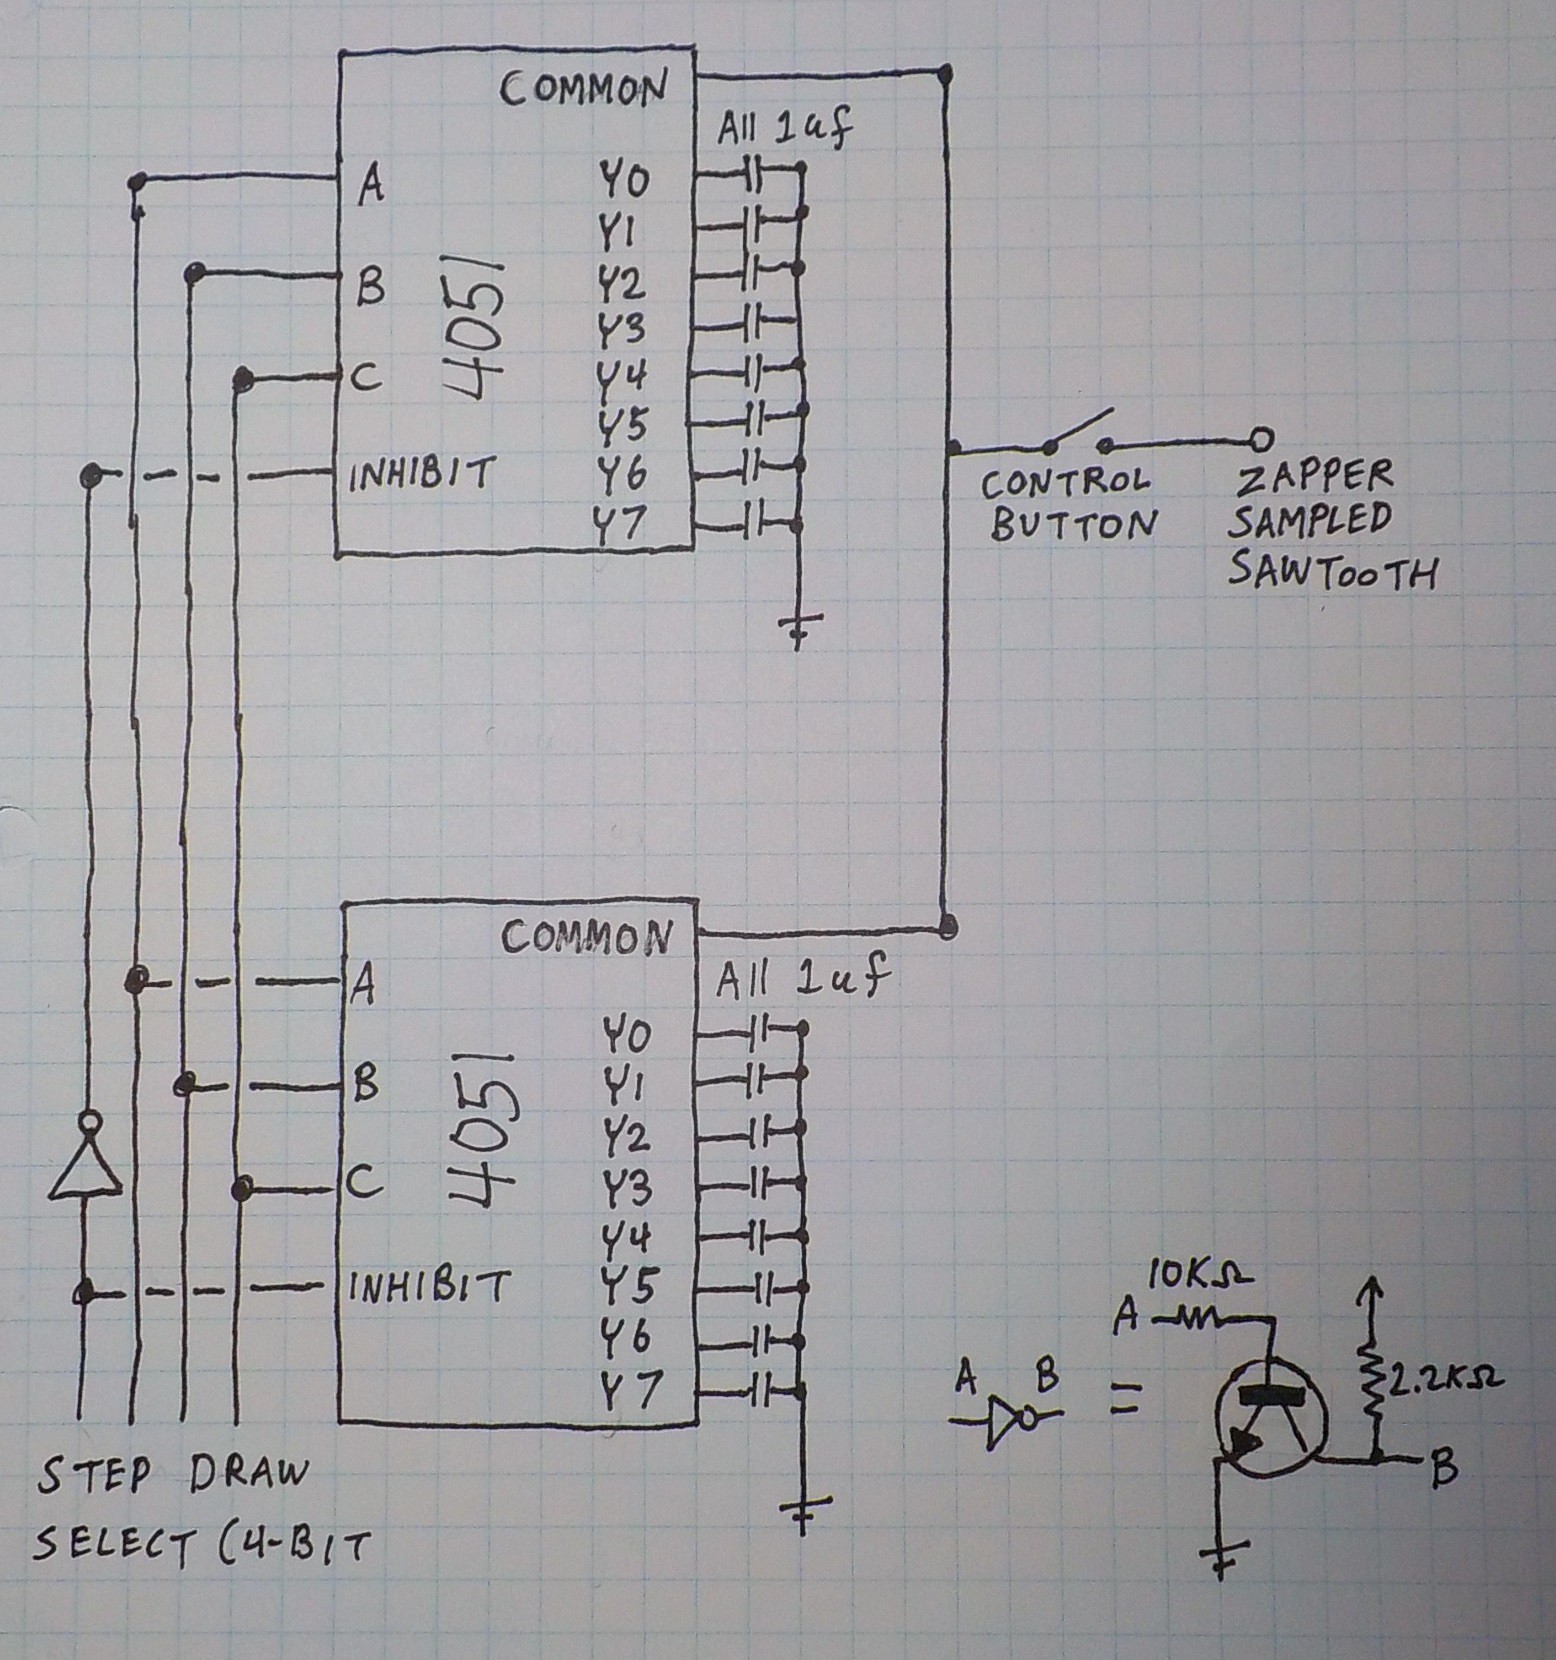 COMMON
All 1uf
A
B
C
INHIBIT
4051
Y0
Y1
Y2
Y3
Y4
Y5
Y6
Y7
CONTROL
BUTTON
ZAPPER
SAMPLED
SAWTOOTH
COMMON
All 1uf
A
B
C
INHIBIT
4051
Y0
Y1
Y2
Y3
Y4
Y5
Y6
Y7
STEP DRAW
SELECT (4-BIT
A B
=
10KΩ
A
2.2KΩ
B